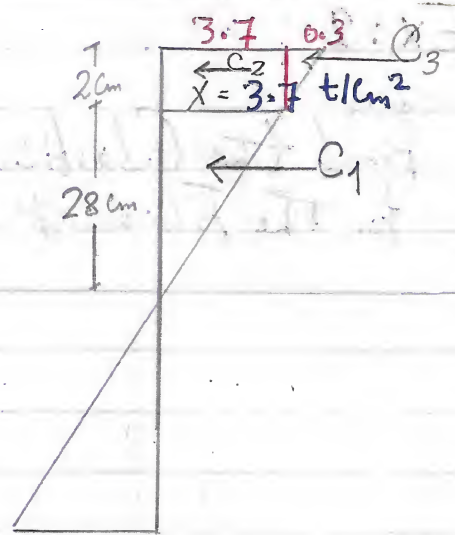 3.7 0.3 C3
2cm C2
X = 3.7 t/cm²
C1
28 cm.